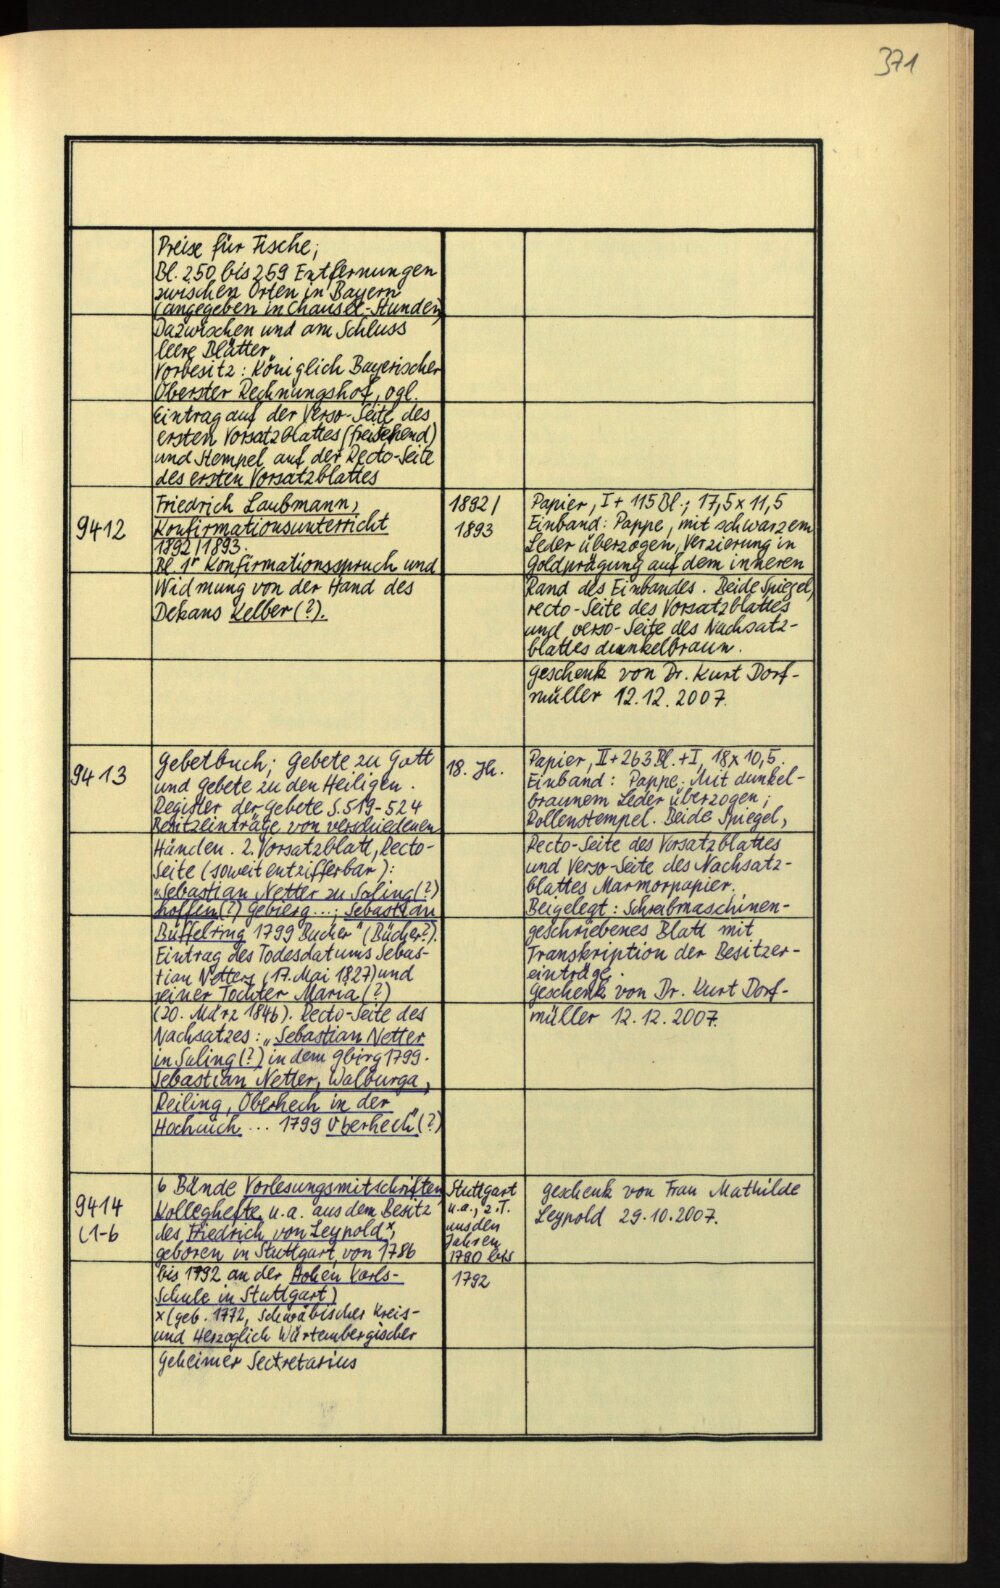 371
Preise für Fische;
Bl. 250 bis 259 Entfernungen
zwischen Orten in Bayern
(angegeben in Chausee-Stunden)
Dazwischen und am Schluss
leere Blätter
Vorbesitz: Königlich Bayerischer
Oberster Rechnungshof, vgl.
Eintrag auf der Verso-Seite des
ersten Vorsatzblattes (freistehend)
und Stempel auf der Recto-Seite
des ersten Vorsatzblattes
9412
Friedrich Laubmann,
Konfirmationsunterricht
1892/1893.
Bl. 1r Konfirmationsspruch und
Widmung von der Hand des
Dekans Kelber (?).
1892/
1893
Papier, I + 115 Bl.; 17,5 x 11,5
Einband: Pappe, mit schwarzem
Leder überzogen, Verzierung in
Goldprägung auf dem inneren
Rand des Einbandes. Beide Spiegel,
recto-Seite des Vorsatzblattes
und verso-Seite des Nachsatz-
blattes dunkelbraun.
Geschenk von Dr. Kurt Dorf-
müller 12.12.2007.
9413
Gebetbuch; Gebete zu Gott
und Gebete zu den Heiligen.
Register der Gebete S. 519-524
Besitzeinträge von verschiedenen
Händen. 2. Vorsatzblatt, Recto-
Seite (soweit entzifferbar):
"Sebastian Netter zu Saling (?)
hoffen (?) Gebierg ...; Sebastian
Büffelring 1799 Bucher" (Bücher?).
Eintrag des Todesdatums Sebas-
tian Netters (17. Mai 1827) und
seiner Tochter Maria (?)
(20. März 1846). Recto-Seite des
Nachsatzes: "Sebastian Netter
in Saling (?) in dem gbirg 1799.
Sebastian Netter, Walburga,
Reiling, Oberhech in der
Hochaich ... 1799 Oberhech" (?)
18. Jh.
Papier, II + 263 Bl. + I, 18 x 10,5.
Einband: Pappe. Mit dunkel-
braunem Leder überzogen;
Rollenstempel. Beide Spiegel,
Recto-Seite des Vorsatzblattes
und Verso-Seite des Nachsatz-
blattes Marmorpapier.
Beigelegt: Schreibmaschinen-
geschriebenes Blatt mit
Transkription der Besitzer-
einträge.
Geschenk von Dr. Kurt Dorf-
müller 12.12.2007.
9414
(1-6
6 Bände Vorlesungsmitschriften
Kolleghefte u.a. aus dem Besitz
des Friedrich von Leypold x,
geboren in Stuttgart, von 1786
bis 1792 an der Hohen Karls-
Schule in Stuttgart)
x (geb. 1772, Schwäbischer Kreis-
und Herzoglich Würtembergischer
Geheimer Secretarius
Stuttgart
u.a., z.T.
aus den
Jahren
1790 bis
1792
Geschenk von Frau Mathilde
Leypold 29.10.2007.